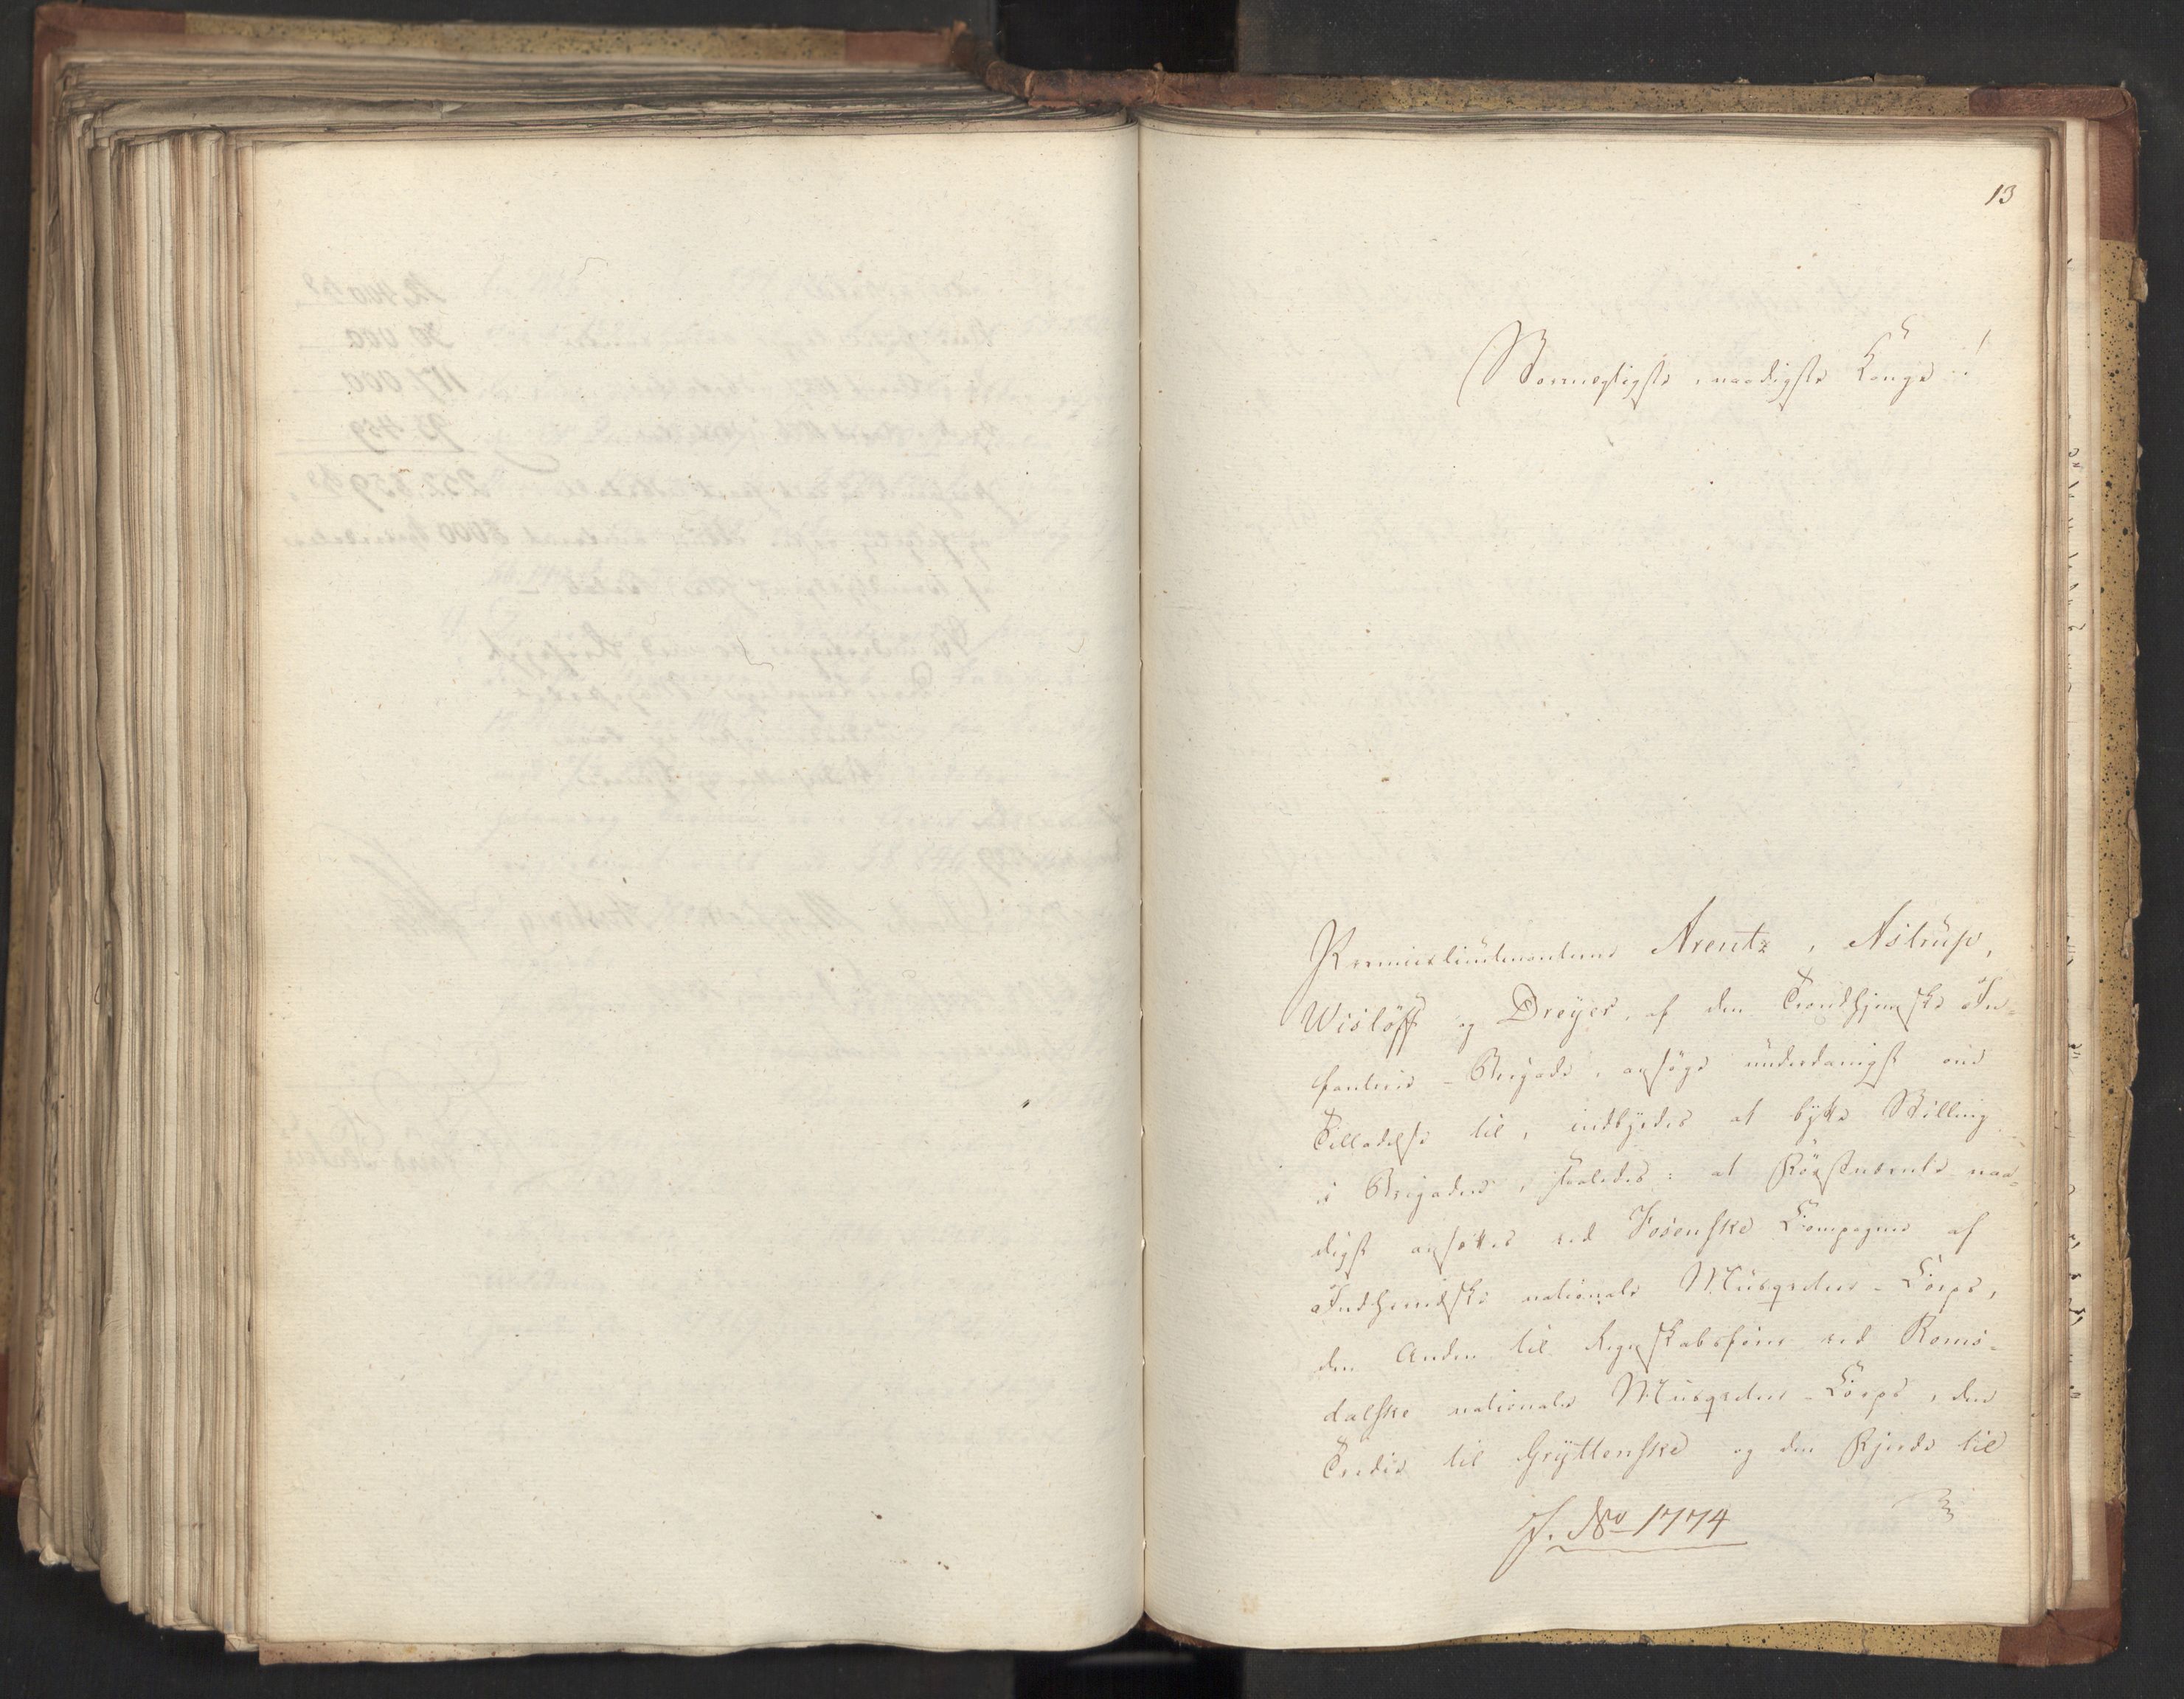 13
Stormegtigste, naadigste Konge!
Premierlieutenanterne Arentz, Astrüp,
Wislöff og Dreyer, af den Trondhjemske In-
fanterie-Brigade, ansöge ünderdanigst om
Tilladelse til, indbyrdes at bytte Stilling
i Brigaden, saaledes: at Förstnævnte naa-
digst ansættes ved Fosenske Compagnie af
Indherredske nationale Müsqveteer-Corps,
den Anden til Regnskabsförer ved Roms-
dalske nationale Müsqveteer-Corps, den
Tredie til Gryttenske og den Fjerde til
J. No 1774